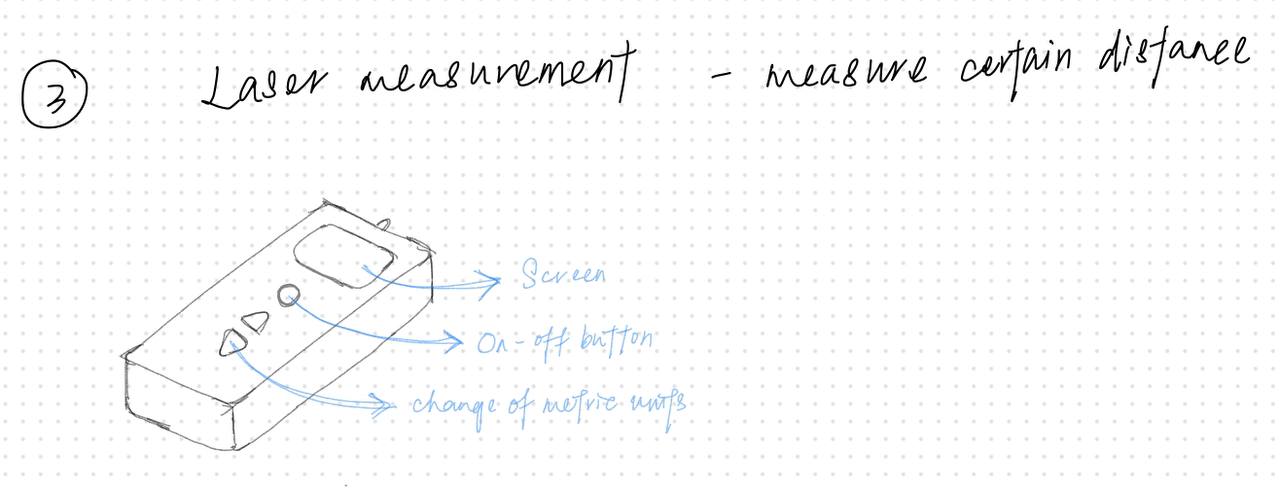 3 Laser measurement - measure certain distance
Screen
On-off button
change of metric units